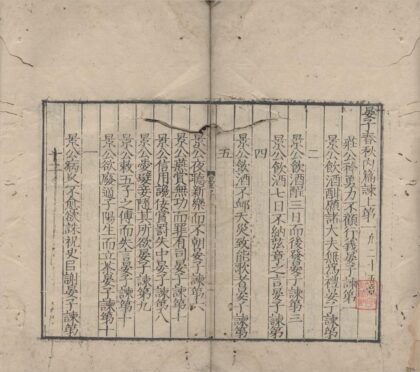 晏子春秋内篇諫上第一 凡二十五章
莊公矜勇力不顧行義晏子諫第一
景公飲酒酣願諸大夫無爲禮晏子諫第
二
景公飲酒酲三日而後發晏子諫第三
景公飲酒七日不納弦章之言晏子諫第
四
景公飲酒不卹天災致能歌者晏子諫第
五
景公夜聽新樂而不朝晏子諫第六
景公燕賞無功而罪有司晏子諫第七
景公信用讒佞賞罰失中晏子諫第八
景公愛嬖妾隨其所欲晏子諫第九
景公敕五子之傅而失言晏子諫第十
景公欲廢適子陽生而立荼晏子諫第十
一
景公病久不愈欲誅祝史以謝晏子諫第
十二